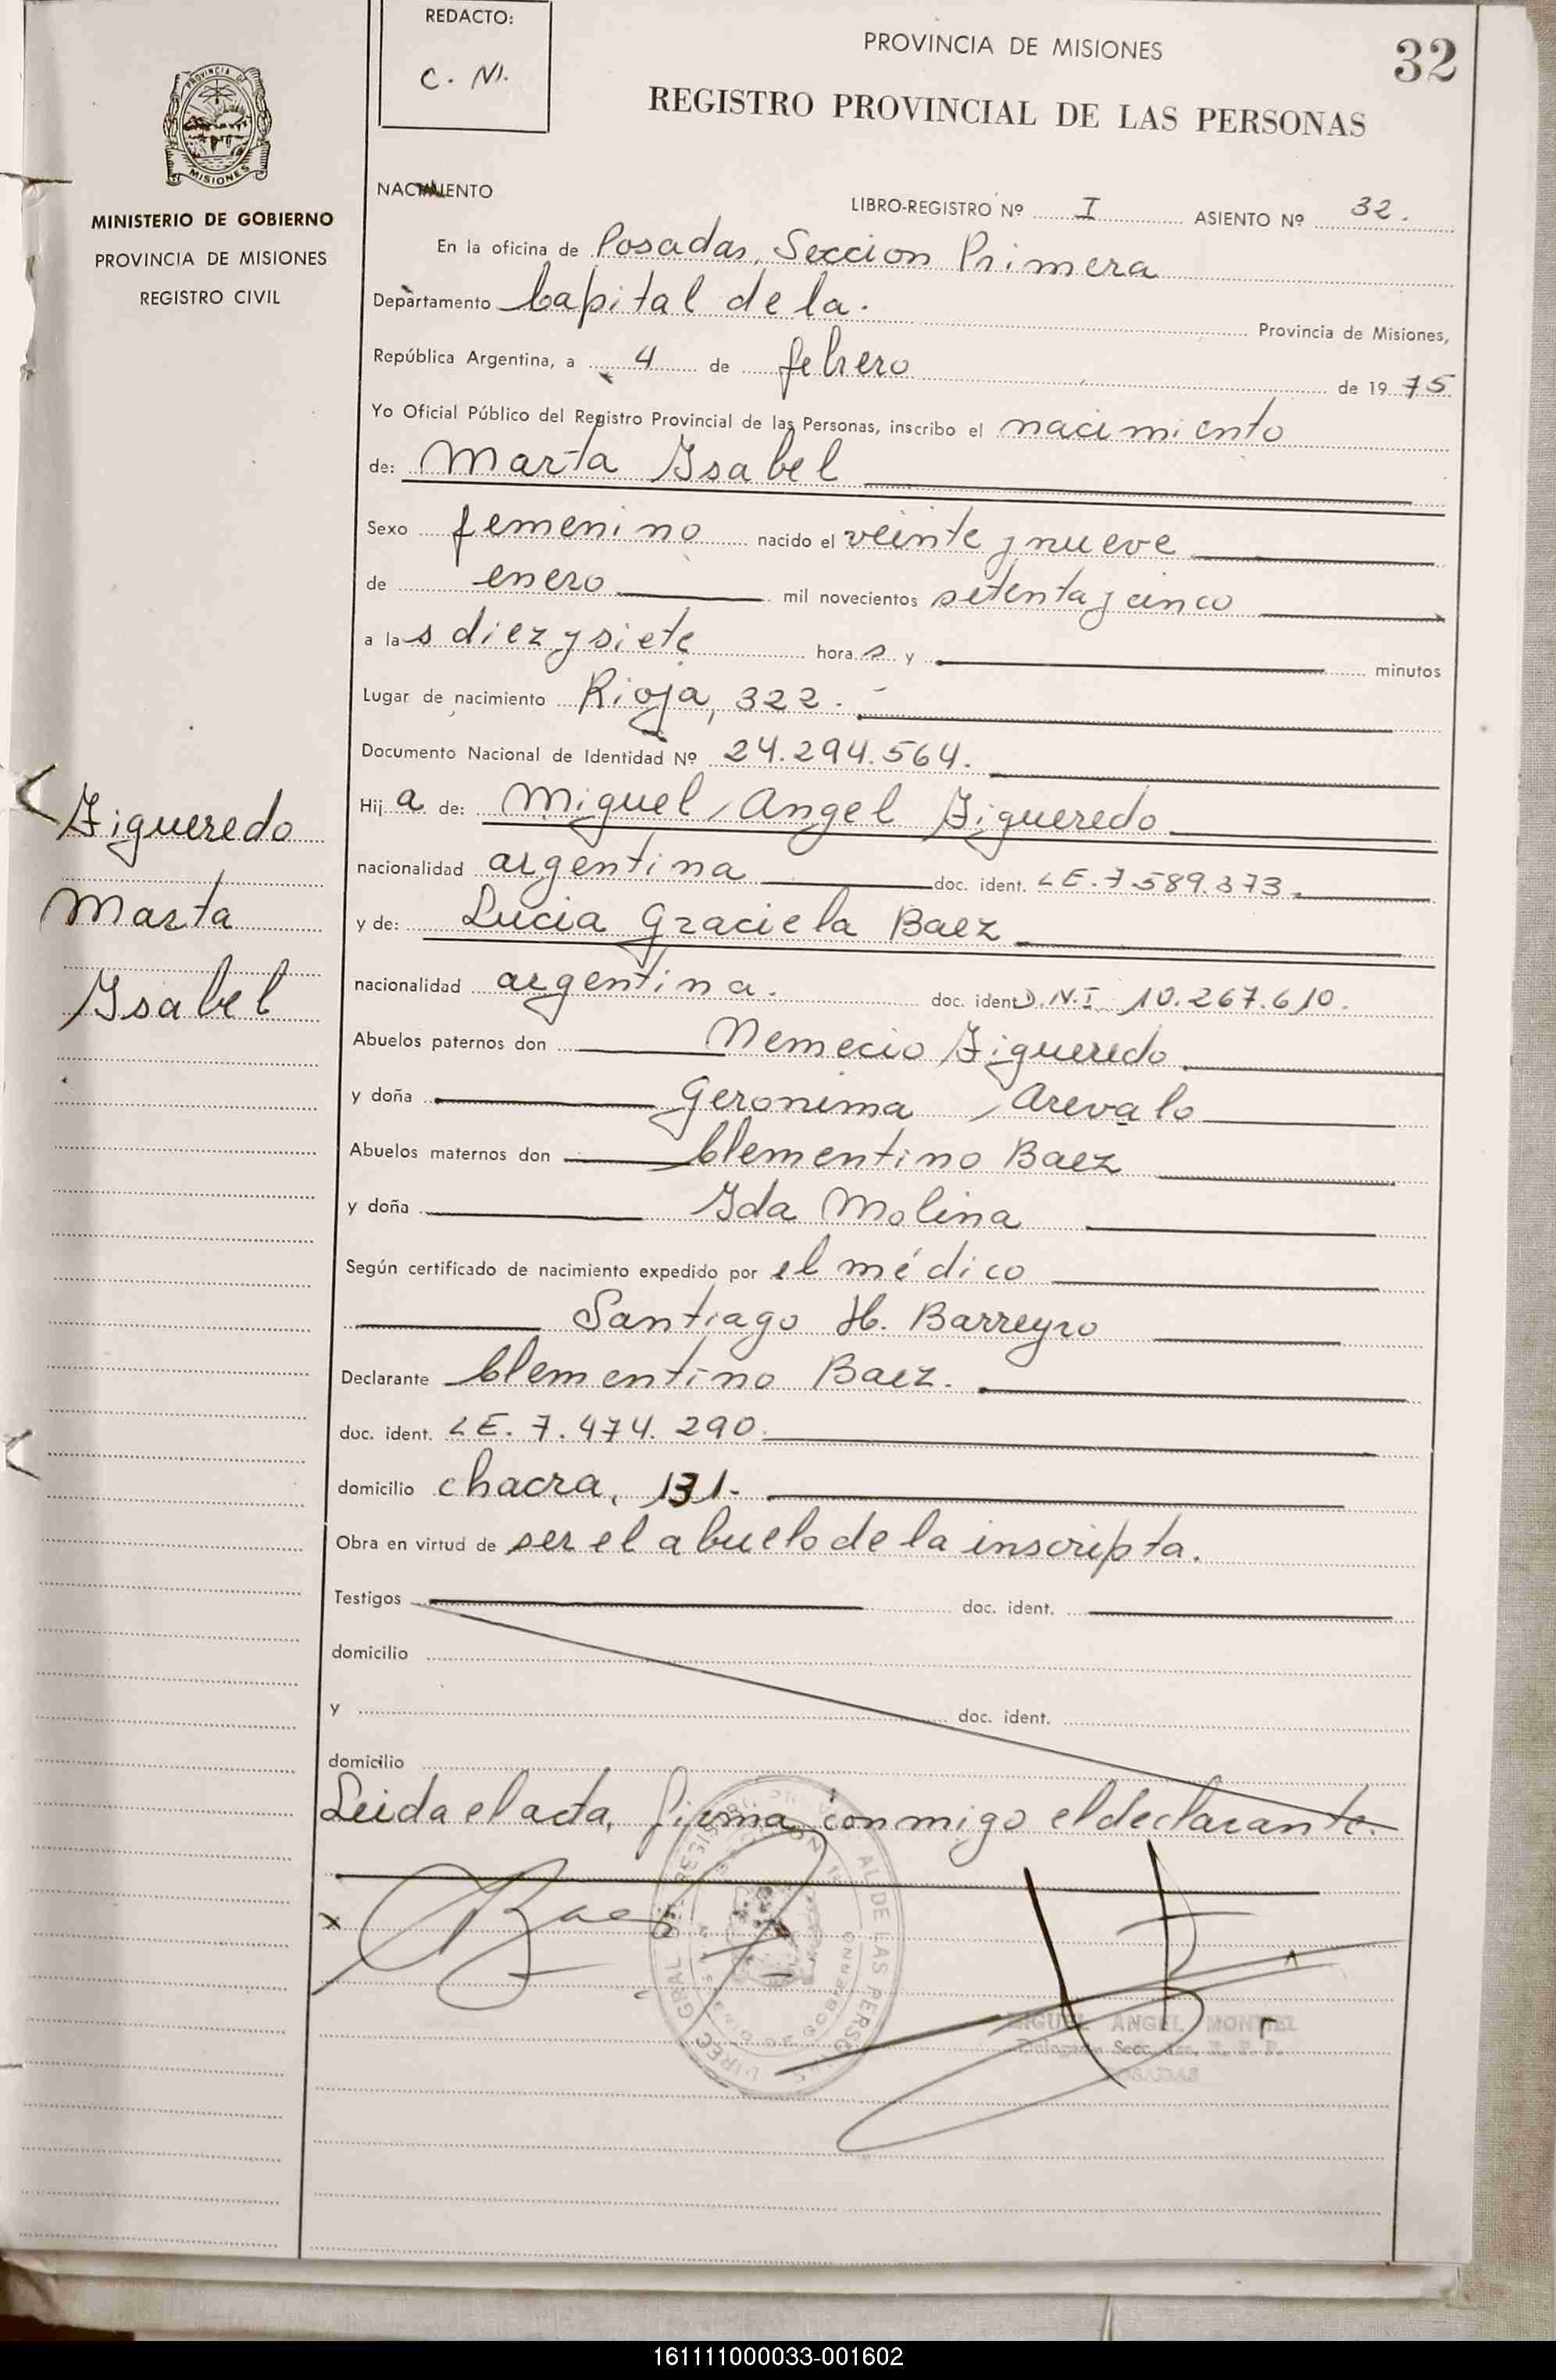 REDACTO:
C. N.
PROVINCIA DE MISIONES
32
REGISTRO PROVINCIAL DE LAS PERSONAS
MISIONES
MINISTERIO DE GOBIERNO
PROVINCIA DE MISIONES
REGISTRO CIVIL
NACIMIENTO
LIBRO-REGISTRO Nº I ASIENTO Nº 32.
En la oficina de Posadas, Seccion Primera
Departamento Capital de la. Provincia de Misiones,
República Argentina, a 4 de febrero de 1975
Yo Oficial Público del Registro Provincial de las Personas, inscribo el nacimiento
de: Marta Ysabel
Sexo femenino nacido el veinte y nueve
de enero mil novecientos setenta y cinco
a las diez y siete horas y minutos
Lugar de nacimiento Rioja, 322.-
Documento Nacional de Identidad Nº 24.294.564.
Hija de: Miguel Angel Figueredo
nacionalidad argentina doc. ident. LE.7.589.373.
y de: Lucia Graciela Baez
nacionalidad argentina. doc. ident D.N.I. 10.267.610.
Abuelos paternos don Nemecio Figueredo
y doña Geronima Arevalo
Abuelos maternos don Clementino Baez
y doña Yda Molina
Según certificado de nacimiento expedido por el médico
Santiago H. Barreyro
Declarante Clementino Baez.
doc. ident. LE. 7.474.290.
domicilio chacra, 131.
Obra en virtud de ser el abuelo de la inscripta.
Testigos doc. ident.
domicilio
y doc. ident.
domicilio
Leida el acta, firma conmigo el declarante.
x Baez
MIGUEL ANGEL MONTIEL
POSADAS
Figueredo
Marta
Ysabel
161111000033-001602